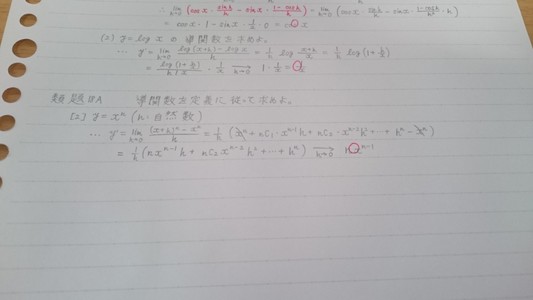 ∴ lim h→0 (cos x · sin h/h − sin x · 1−cos h/h) = lim h→0 (cos x · sin h/h − sin x · 1−cos h/h² · h)
= cos x · 1 − sin x · 1/2 · 0 = cos x
(2) y = log x の導関数を求めよ。
… y' = lim h→0 log(x+h) − log x / h = 1/h log x+h/x = 1/h log(1 + h/x)
= log(1 + h/x) / h/x · 1/x → h→0 1 · 1/x = 1/x
類題 A 導関数を定義に従って求めよ。
(2) y = xⁿ (n : 自然数)
… y' = lim h→0 (x+h)ⁿ − xⁿ / h = 1/h (xⁿ + nC₁ · xⁿ⁻¹h + nC₂ · xⁿ⁻²h² + … + hⁿ − xⁿ)
= 1/h (nxⁿ⁻¹h + nC₂ xⁿ⁻²h² + … + hⁿ) → h→0 nxⁿ⁻¹